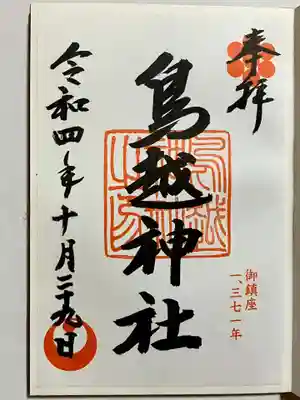 奉拝
鳥越神社
御鎮座
一、三七一年
令和四年十月二十九日